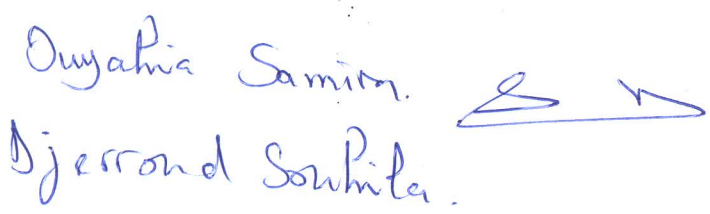 Ouyahia Samira.
Djerroud Souhila.